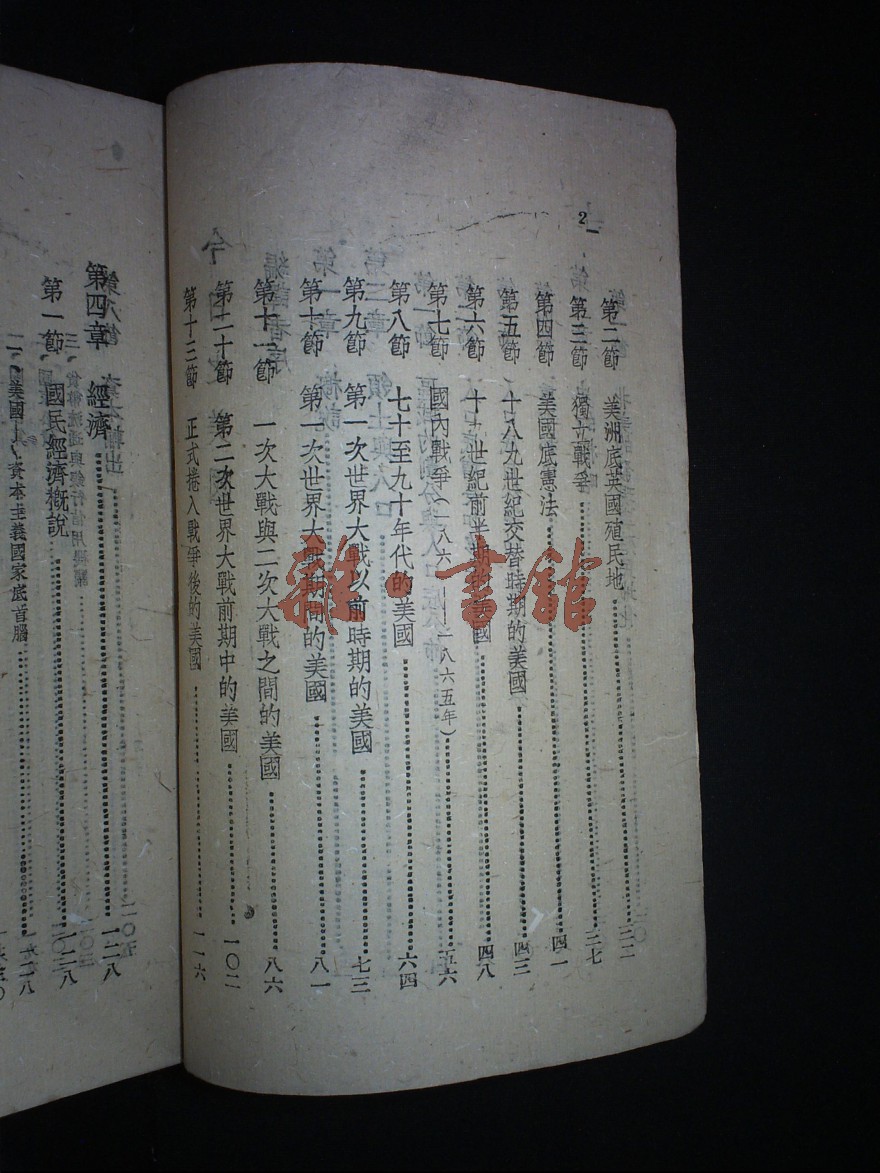 2
第二節 美洲底英國殖民地 三二
第三節 獨立戰爭 三七
第四節 美國底憲法 四一
第五節 十八九世紀交替時期的美國 四三
第六節 十九世紀前半期的美國 四八
第七節 國內戰爭（一八六一——一八六五年） 五六
第八節 七十至九十年代的美國 六四
第九節 第一次世界大戰以前時期的美國 七三
第十節 第一次世界大戰期間的美國 八一
第十一節 一次大戰與二次大戰之間的美國 八六
第十二節 第二次世界大戰前期中的美國 一〇二
第十三節 正式捲入戰爭後的美國 一一六
第四章 經濟 一二八
第一節 國民經濟概說 一二八
美國——資本主義國家底首腦 一二八
雜·書館